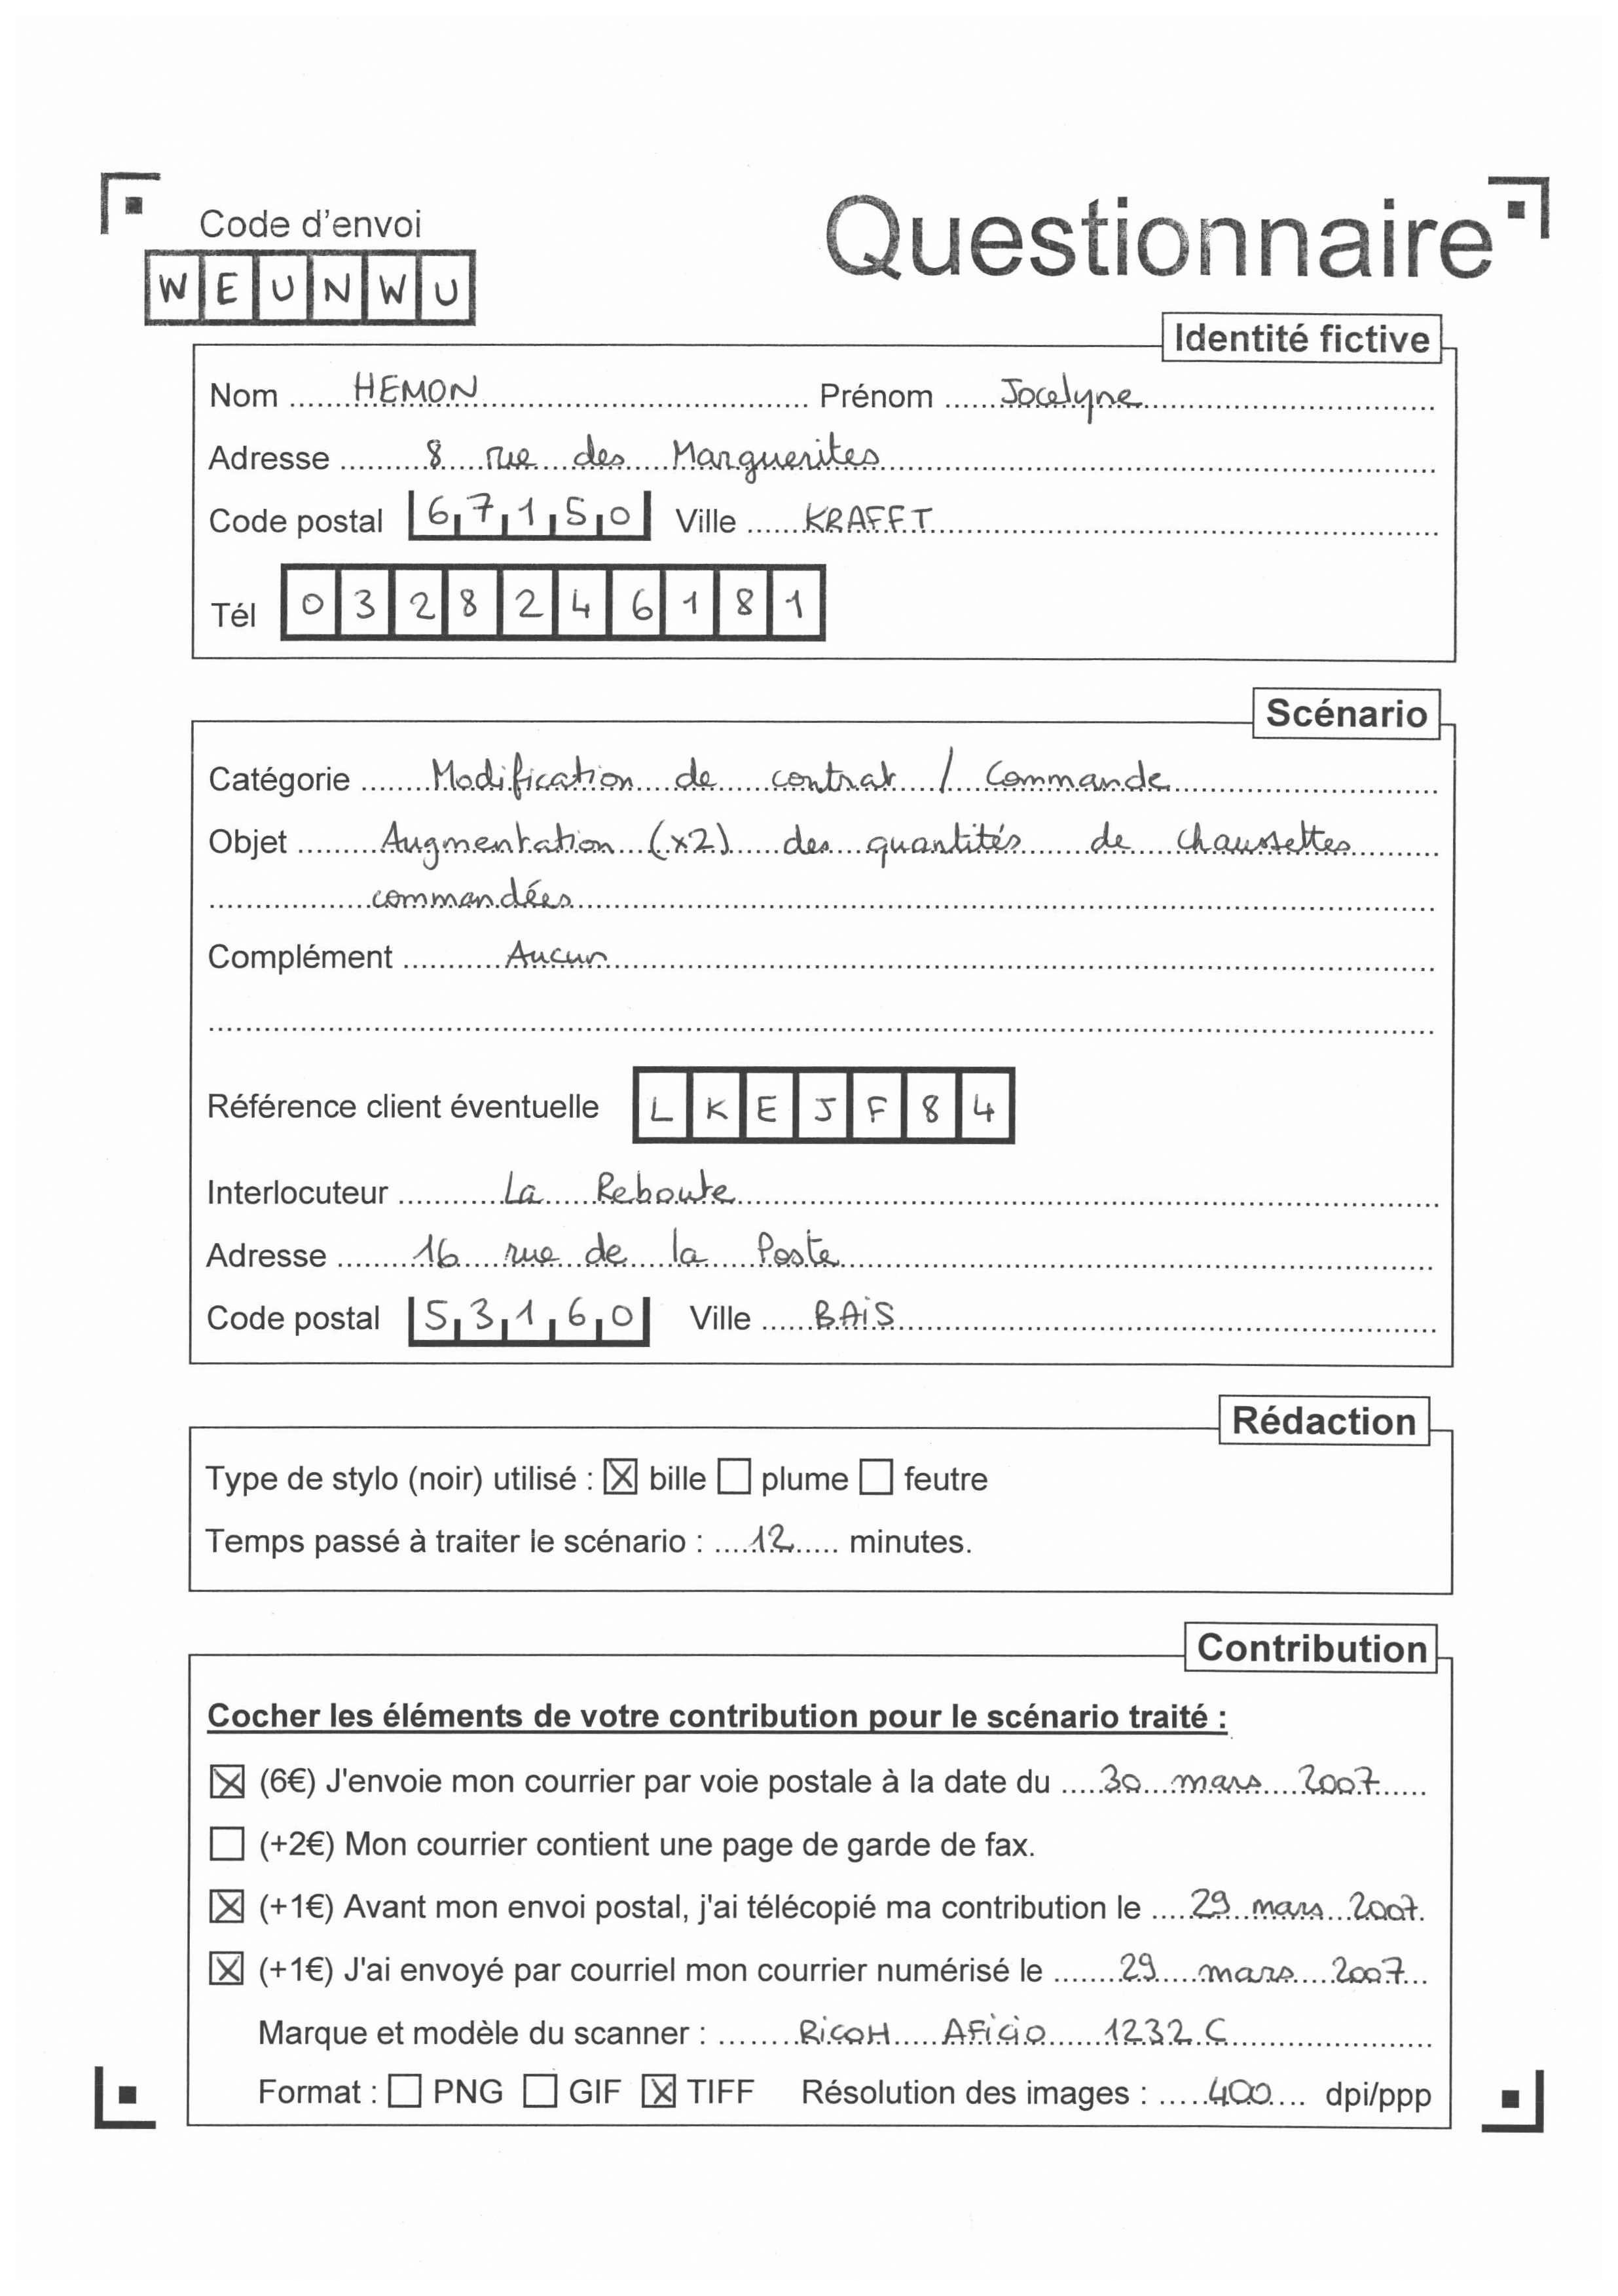 Code d'envoi
WEUNWU
Questionnaire
Identité fictive
Nom HEMON Prénom Jocelyne
Adresse 8 rue des Marguerites
Code postal 67150 Ville KRAFFT
Tél 0328246181
Scénario
Catégorie Modification de contrat / Commande
Objet Augmentation (x2) des quantités de chaussettes
commandées
Complément Aucun
Référence client éventuelle LKEJF84
Interlocuteur La Reboute
Adresse 16 rue de la Poste
Code postal 53160 Ville BAIS
Rédaction
Type de stylo (noir) utilisé : ☒ bille ☐ plume ☐ feutre
Temps passé à traiter le scénario : 12 minutes.
Contribution
Cocher les éléments de votre contribution pour le scénario traité :
☒ (6€) J'envoie mon courrier par voie postale à la date du 30 mars 2007
☐ (+2€) Mon courrier contient une page de garde de fax.
☒ (+1€) Avant mon envoi postal, j'ai télécopié ma contribution le 29 mars 2007.
☒ (+1€) J'ai envoyé par courriel mon courrier numérisé le 29 mars 2007
Marque et modèle du scanner : RICOH AFICIO 1232 C
Format : ☐ PNG ☐ GIF ☒ TIFF Résolution des images : 400 dpi/ppp